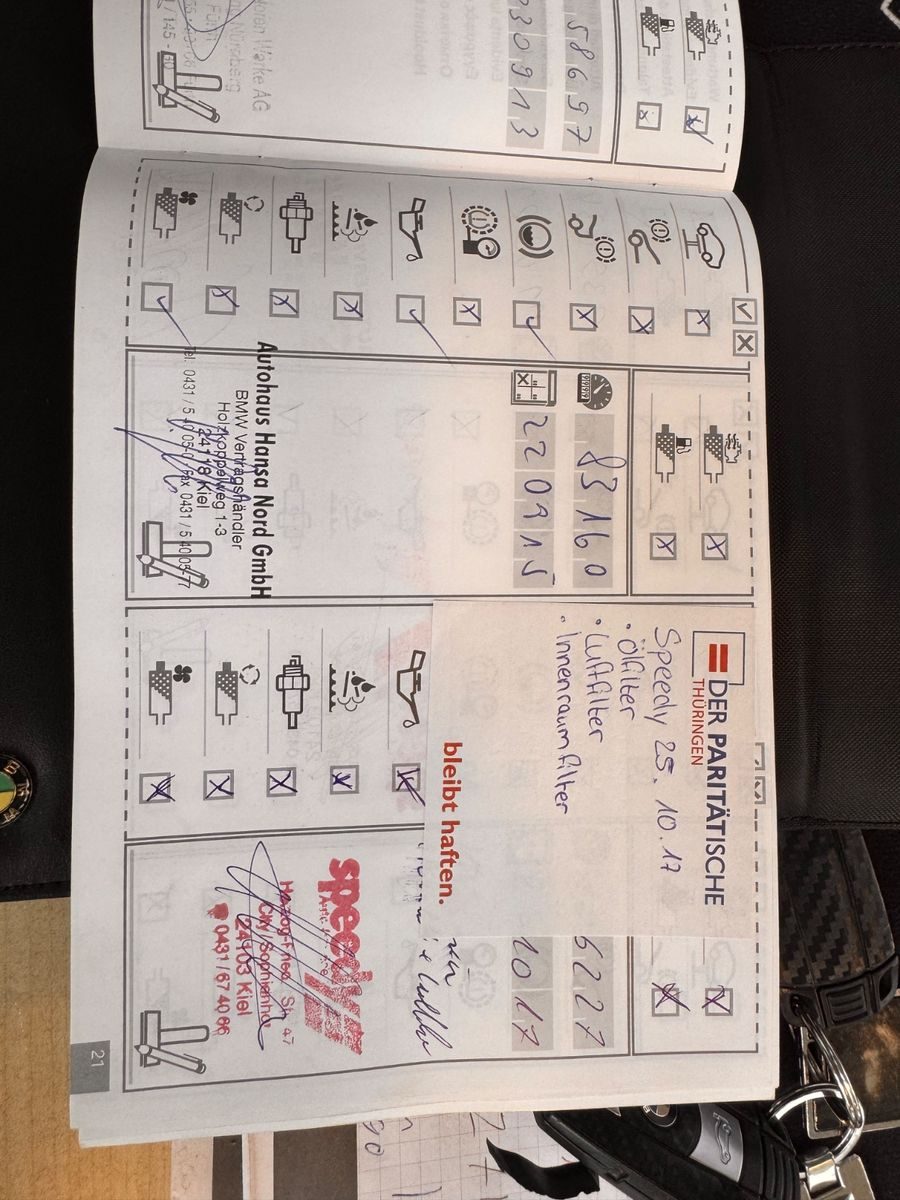 58697
230913
Werke AG
Nürnberg
/ 145 -
83160
220915
Autohaus Hansa Nord GmbH
BMW Vertragshändler
Holzkoppelweg 1-3
24118 Kiel
Tel. 0431 / 5 40 05-0 Fax 0431 / 5 40 05-77
DER PARITÄTISCHE
THÜRINGEN
Speedy 25. 10. 17
• Ölfilter
• Luftfilter
• Innenraumfilter
bleibt haften.
6227
1017
speedy
24103 Kiel
0431 / 67 40 86
21
BMW